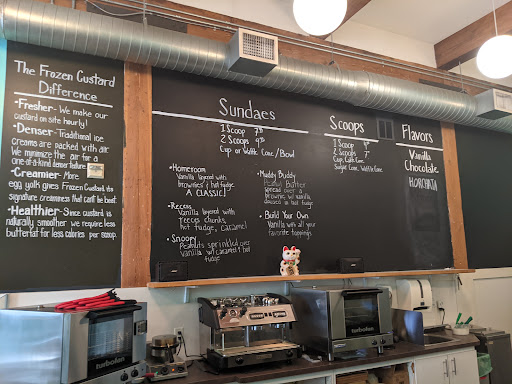 The Frozen Custard
Difference
• Fresher- We make our
custard on site hourly!
• Denser- Traditional ice
creams are packed with air
We minimize the air for a
one-of-a-kind denser
• Creamier- More
egg yolk gives Frozen Custard its
signature creaminess that can't be beat.
• Healthier- Since custard is
naturally smoother we require less
butterfat for less calories per scoop.
Sundaes
1 Scoop
2 Scoops
Cup or Waffle Cone/Bowl
• Homeroom
Vanilla layered with
brownies & hot fudge
A CLASSIC!
• Recess
Vanilla layered with
reeces chunks,
hot fudge, caramel
• Snoopy
Peanuts sprinkled over
vanilla w/ caramel & hot
fudge
• Muddy Buddy
Peanut Butter
spread over a
brownie w/ vanilla,
in hot fudge
• Build Your Own
Vanilla with all your
favorite toppings
Scoops
1 Scoop
2 Scoops 7
Cup, Cake Cone,
Sugar Cone, Waffle Cone
Flavors
Vanilla
Chocolate
HORCHATA
turbofan
turbofan